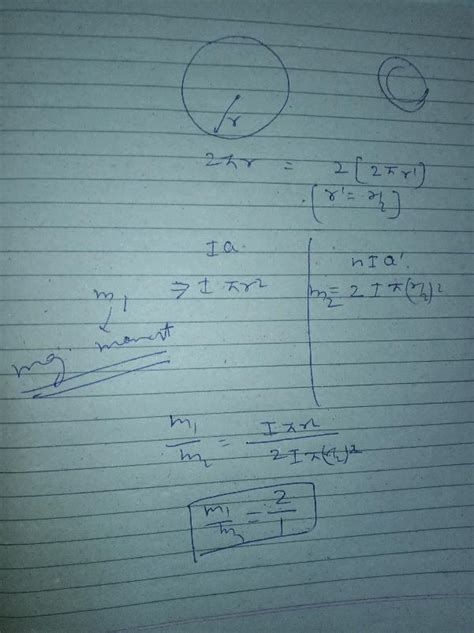 r
2πr = 2[2πr']
[r' = r/2]
Ia.
nIa'.
m₁ ⇒ Iπr²
m₂ = 2Iπ(r/2)²
mag. moment
m₁/m₂ = Iπr²/2Iπ(r/2)²
m₁/m₂ = 2/1